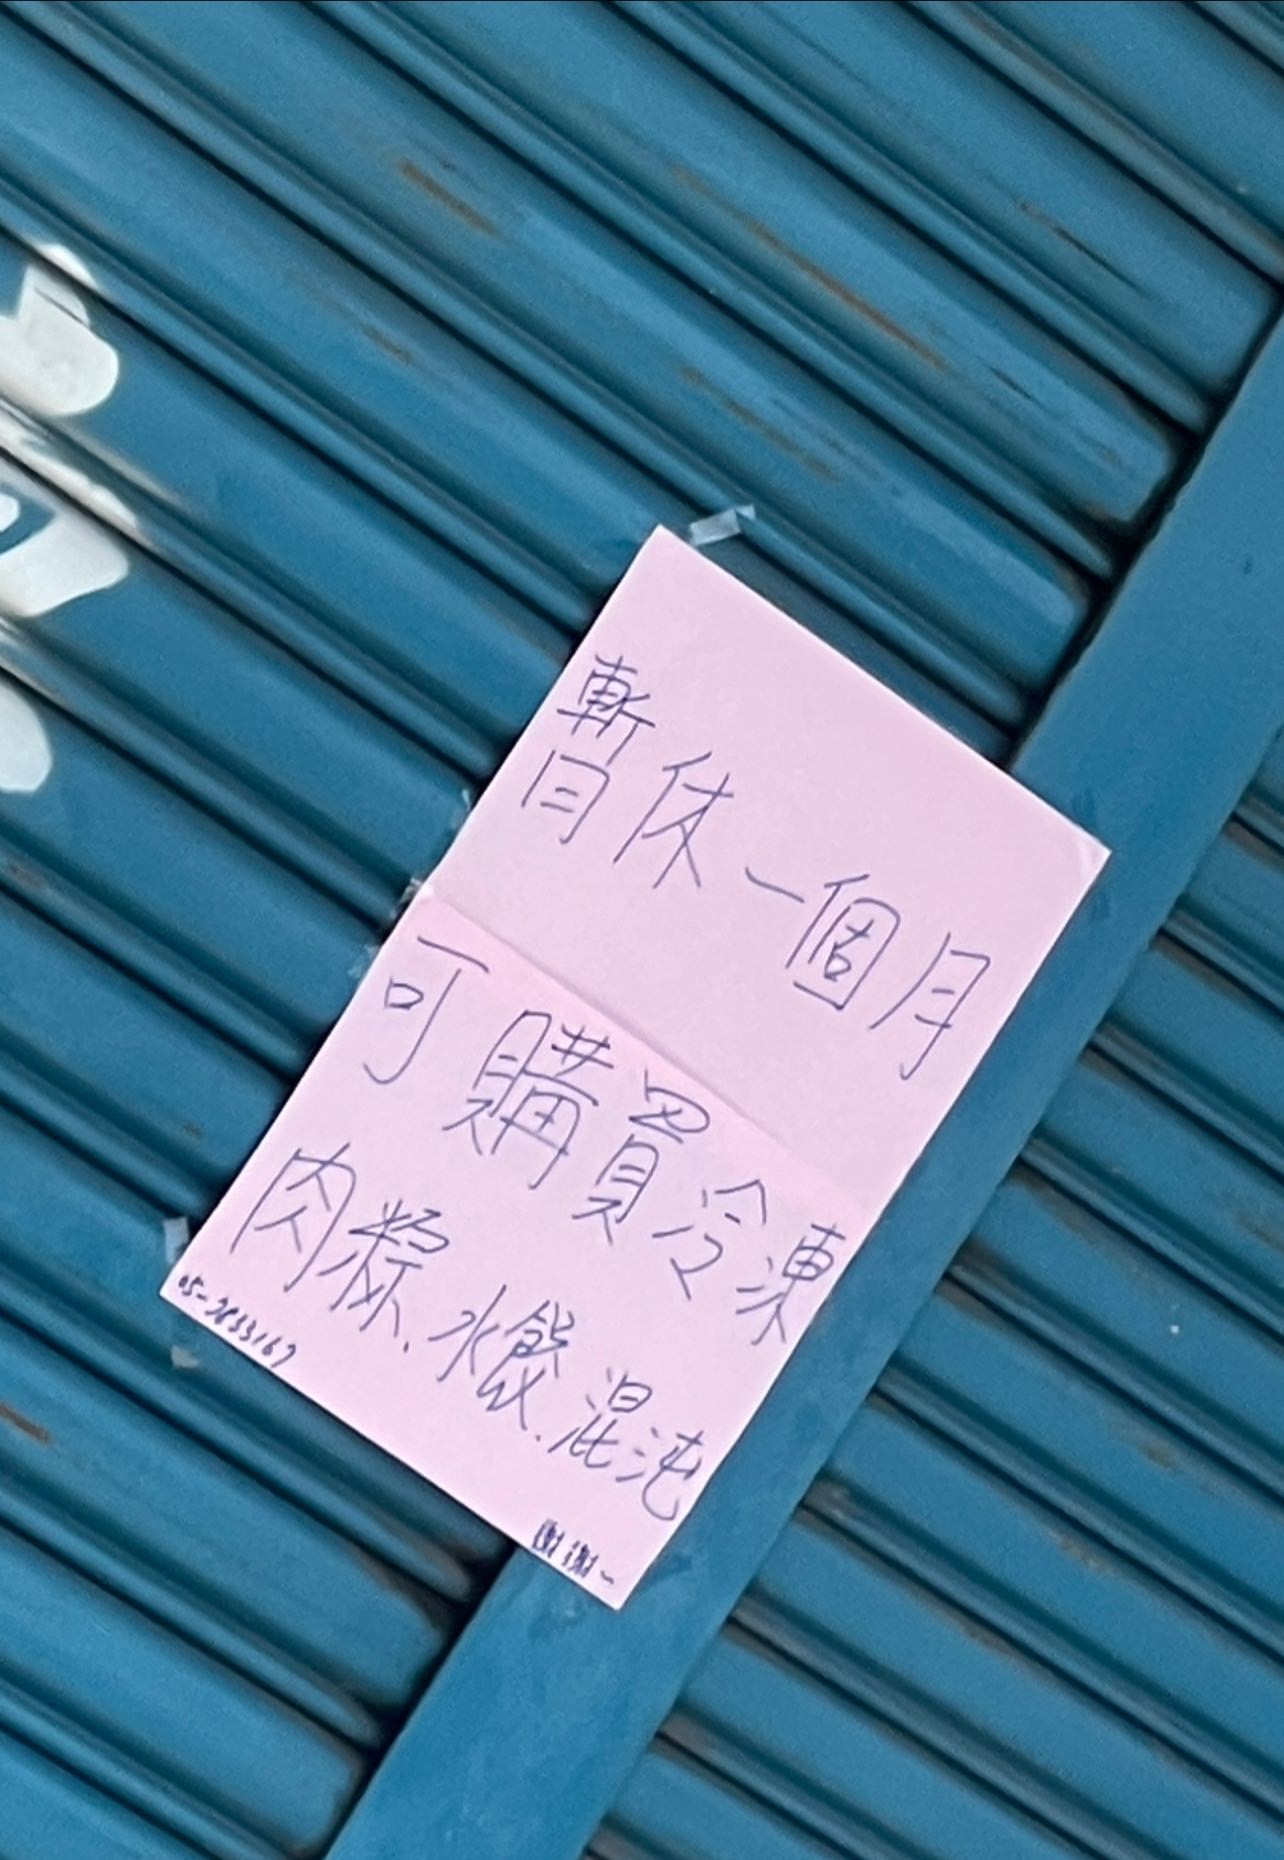 暫休一個月
可購買冷凍
肉粽、水餃、混沌
05-2833167
謝謝~